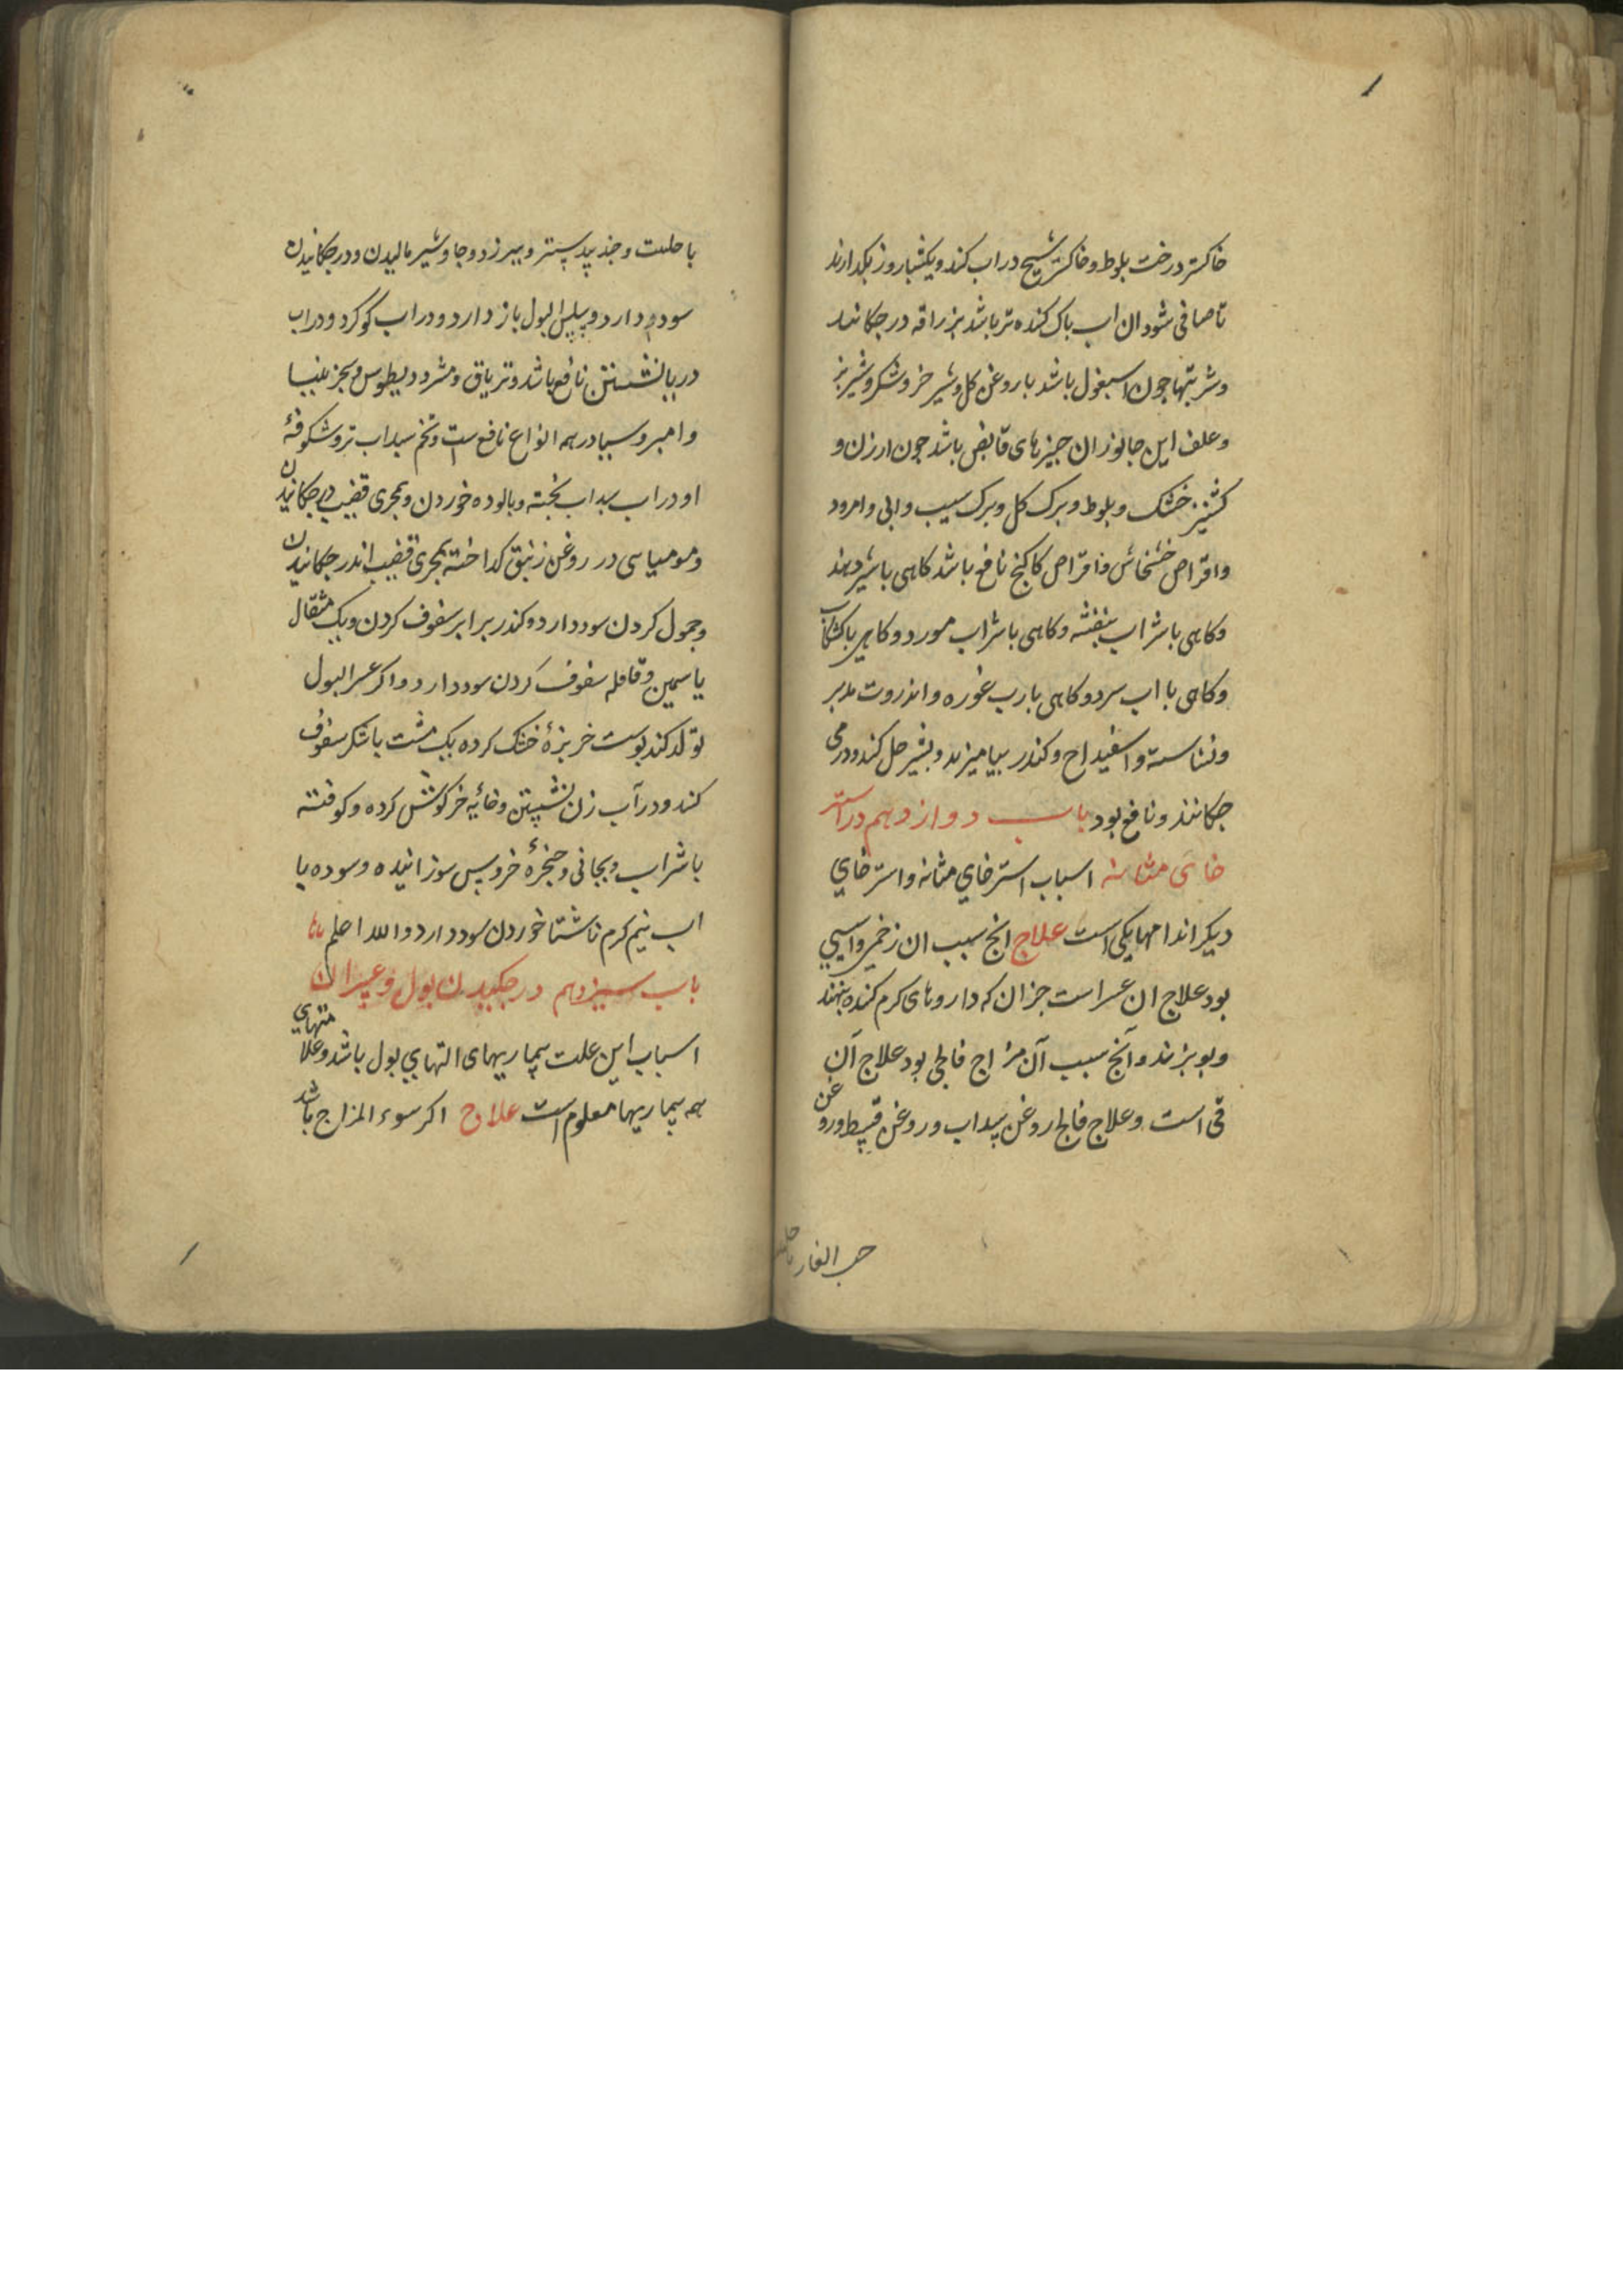 خاکستر درخت بلوط و خاکستر شیح در اب کنند و یکشباروز بکدارند
تا صافی شود ان اب باک کننده تر باشد بزراقه در جکانند
و شربتها جون اسبغول باشد با روغن کل و شیر خر و شکر و شیر بز
و علف این جانوران جیزهای قابض باشد جون ارزن و
کشنیز خشک و بلوط و برک کل و برک سیب و ابی و امرود
و اقراص خشخاش و اقراص کاکنج نافع باشد کاهی با شیر دهند
و کاهی با شراب بنفشه و کاهی با شراب مورد و کاهی با کشکاب
و کاهی با اب سرد و کاهی با رب غوره و انزروت مدبر
و نشاسته و اسفیداج و کندر بیامیزند و بشیر حل کنند و در می
جکانند و نافع بود باب دوازدهم در استر
خای مثانه اسباب استرخای مثانه و استرخای
دیکر اندامها یکی است علاج انج سبب ان زخمی و اسیبی
بود علاج ان عسر است جز ان که داروهای کرم کننده بنهند
و بوبزند و آنج سبب آن مزاج فالجی بود علاج آن
قی است و علاج فالج روغن سداب و روغن قسط و روغن
حب الغار با حلتیت
با حلتیت و جند بیدستر و بیرزد و جاوشیر مالیدن و در جکانیدن
سود دارد و سلس البول باز دارد و در اب کوکرد و در اب
دریا نشستن نافع باشد و تریاق و مثرودیطوس و سجزینیا
و امروسیا در همه انواع نافع است و تخم سداب تر و شکوفهٔ
او در اب سداب بخته و بالوده خوردن و بمجری قضیب در جکانیدن
و مومیاسی در روغن زنبق کداخته بمجری قضیب اندر جکانیدن
و حمول کردن سود دارد و کندر برابر سفوف کردن و یک مثقال
یاسمین و قاقله سفوف کردن سود دارد و اکر عسر البول
تولد کند بوست خربزهٔ خشک کرده یک مشت با شکر سفوف
کند و در آب زن نشستن و خایهٔ خرکوش کرده و کوفته
با شراب ریحانی و حنجرهٔ خروس سوزانیده و سوده با
اب نیم کرم ناشتا خوردن سود دارد والله اعلم
باب سیزدهم در جکیدن بول و عسر ان
اسباب این علت بیماریهای التهای بول باشد و علا منتهای
همه بیماریها معلوم است علاج اکر سوء المزاج باشد